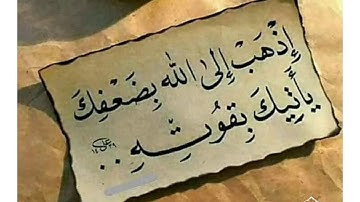 إِذْهَبْ إِلىٰ اللهِ بِضَعْفِكَ
يأتِيكَ بِقُوتِهِ ..